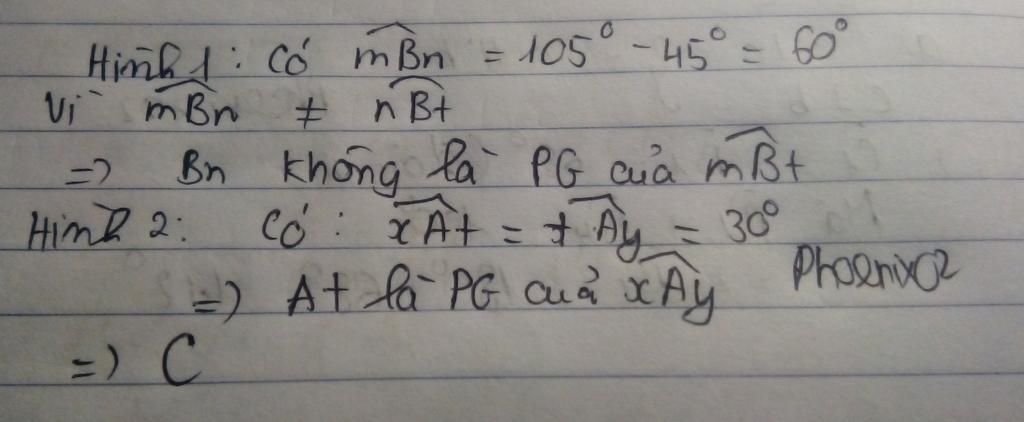 Hình 1 : Có mBn = 105° - 45° = 60°
Vì mBn ≠ nBt
=> Bn không là PG của mBt
Hình 2: Có : xAt = tAy = 30°
=> At là PG của xAy
Phoenix02
=> C